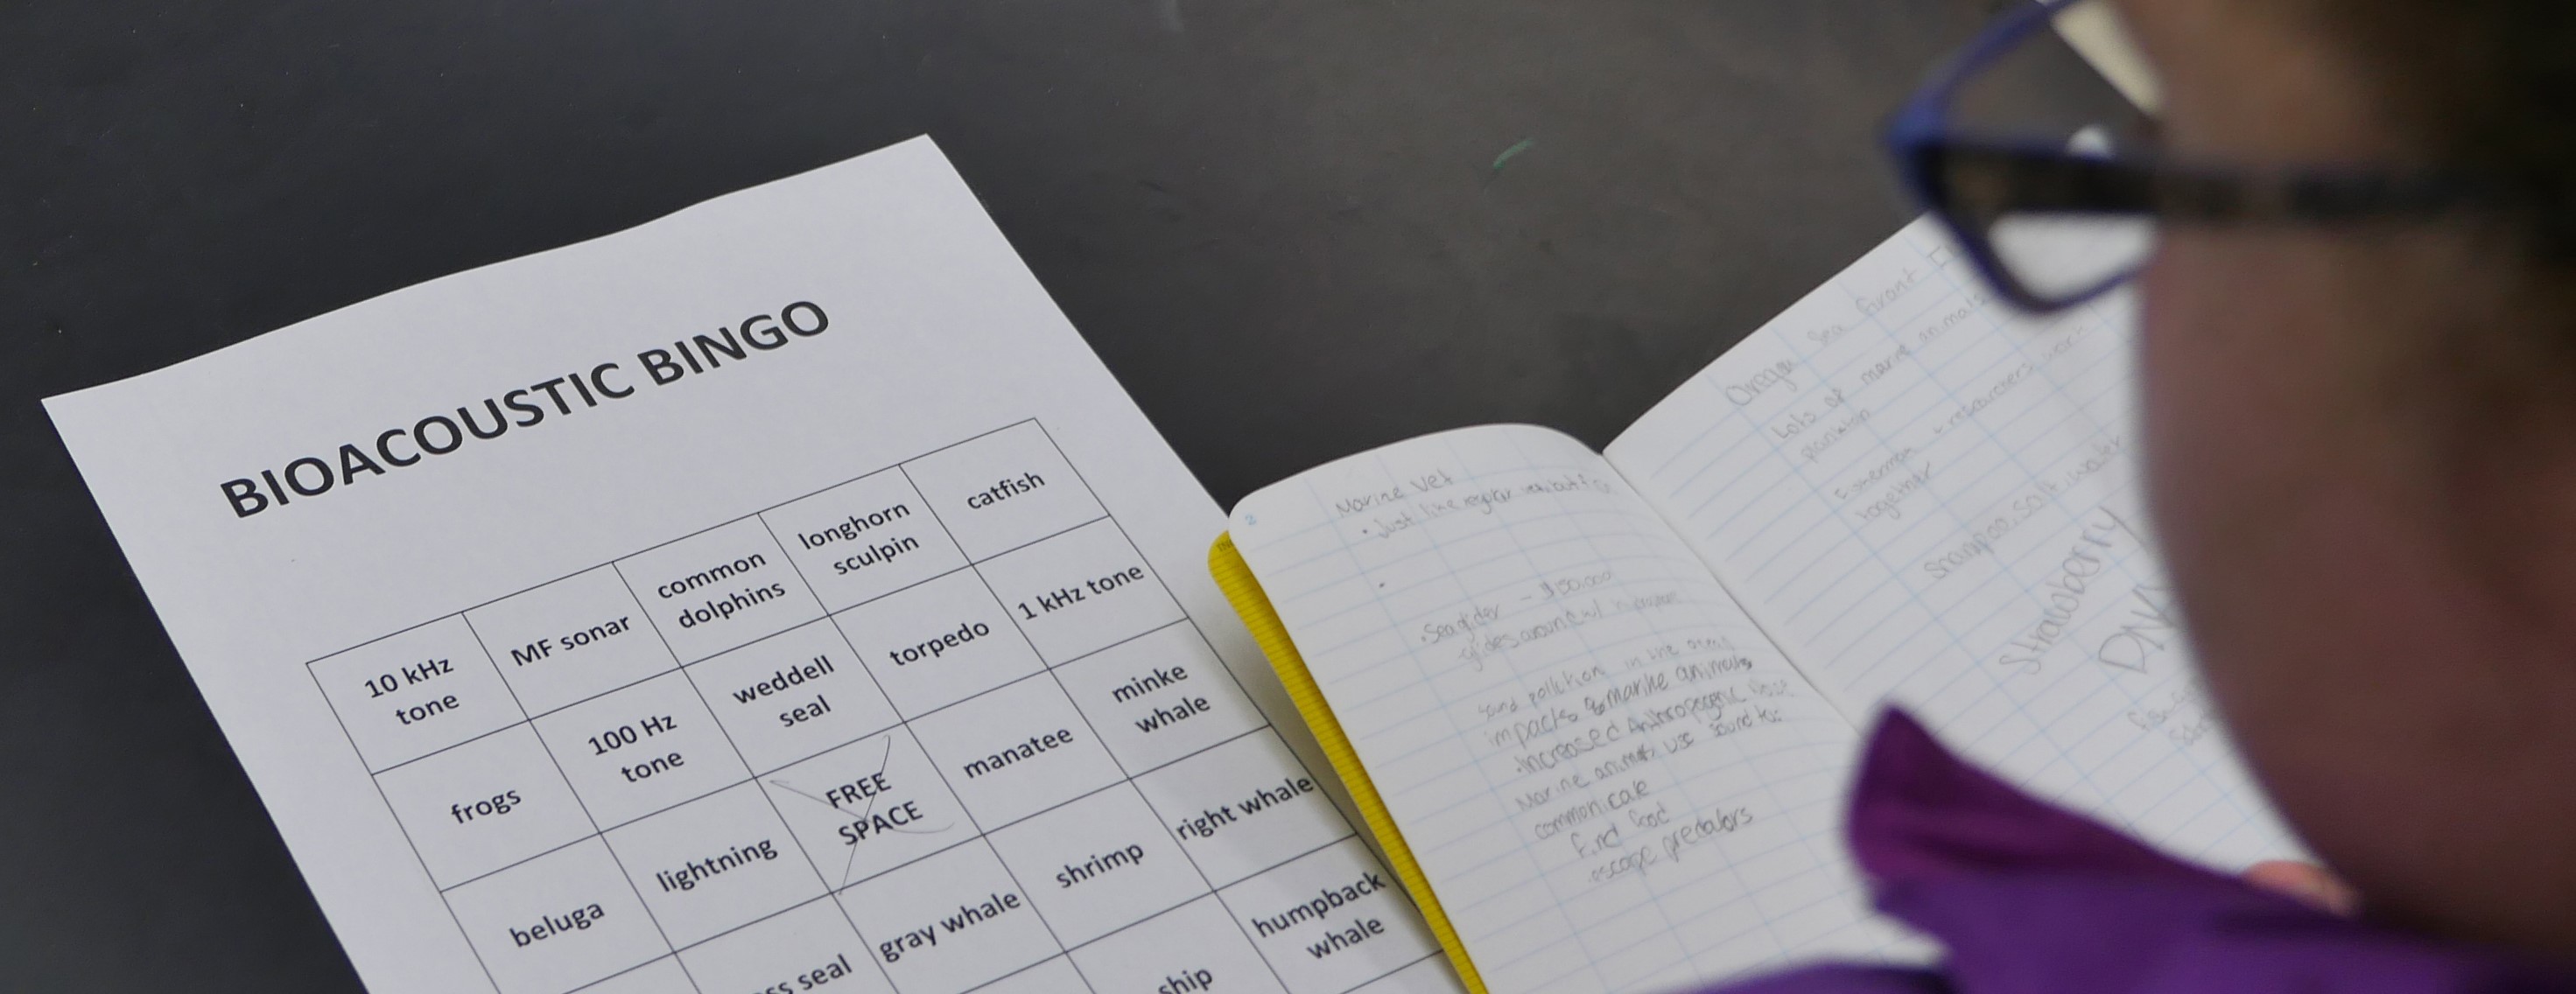 BIOACOUSTIC BINGO
10 kHz
tone
MF sonar
common
dolphins
longhorn
sculpin
catfish
frogs
100 Hz
tone
weddell
seal
torpedo
1 kHz tone
beluga
lightning
FREE
SPACE
manatee
minke
whale
seal
gray whale
shrimp
right whale
ship
humpback
whale
2
Marine Vet
• Just like regular
Seaglider - $150,000
glides around w/
sound pollution in the ocean
impacts marine animals
• increased Anthropogenic noise
Marine animals use sound to:
communicate
find food
escape predators
Oregon Sea Grant
Lots of marine animals
plankton
Fisherman + researchers work
together
Shampoo, salt, water
Strawberry
DNA